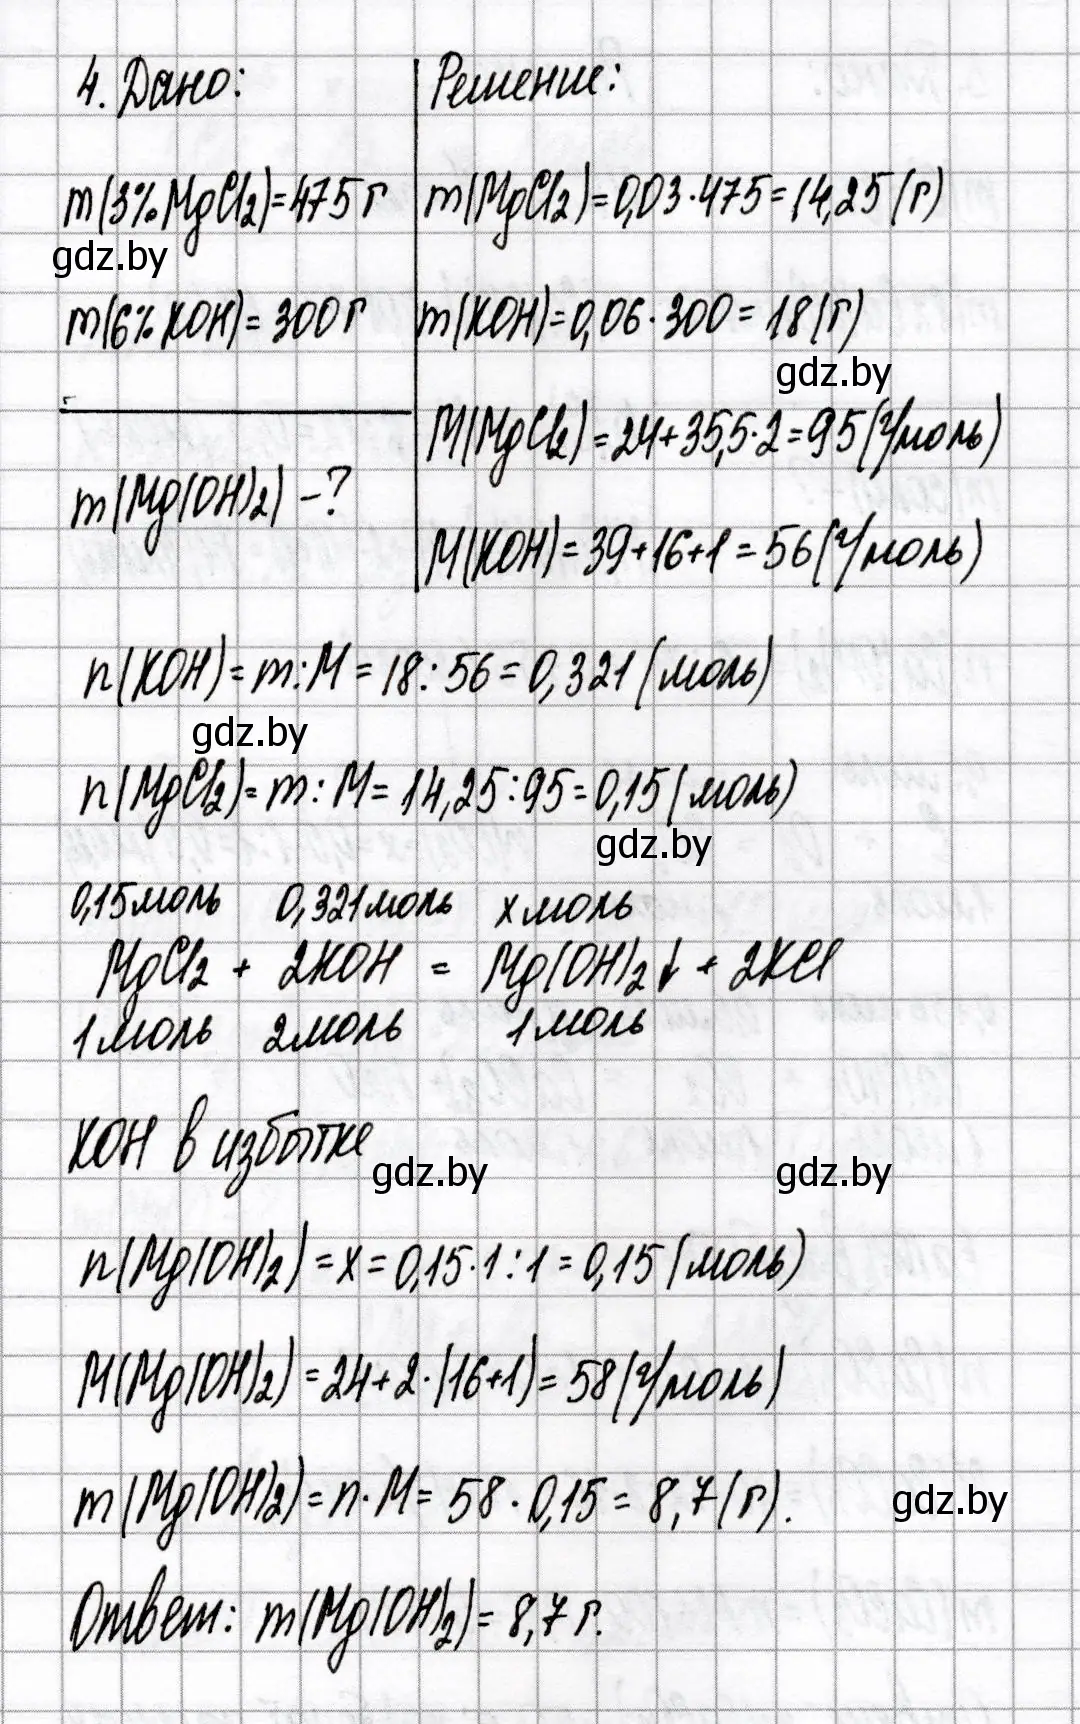 4. Дано:
Решение:
m(3% MgCl2)=475 г
m(MgCl2)=0,03·475=14,25 (г)
gdz.by
m(6% KOH)=300 г
m(KOH)=0,06·300=18(г)
gdz.by
M(MgCl2)=24+35,5·2=95(г/моль)
m(Mg(OH)2) -?
M(KOH)=39+16+1=56(г/моль)
n(KOH)=m:M=18:56=0,321 (моль)
gdz.by
n(MgCl2)=m:M=14,25:95=0,15 (моль)
gdz.by
0,15моль 0,321моль x моль
MgCl2 + 2KOH = Mg(OH)2↓ + 2KCl
1 моль 2моль 1 моль
KOH в избытке
gdz.by gdz.by
n(Mg(OH)2)=x=0,15·1:1=0,15 (моль)
M(Mg(OH)2)=24+2·(16+1)=58(г/моль)
m(Mg(OH)2)=n·M=58·0,15=8,7(г).
gdz.by
Ответ: m(Mg(OH)2)=8,7 г.